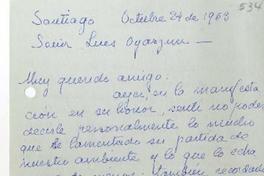 534
Santiago Octubre 24 de 1963
Señor Luis Oyarzun —
Muy querido amigo:
ayer, en la manifesta
ción en su honor, sentí no poder
decirle personalmente lo mucho
que he lamentado su partida de
nuestro ambiente y lo que lo echa
de menos. También recordado